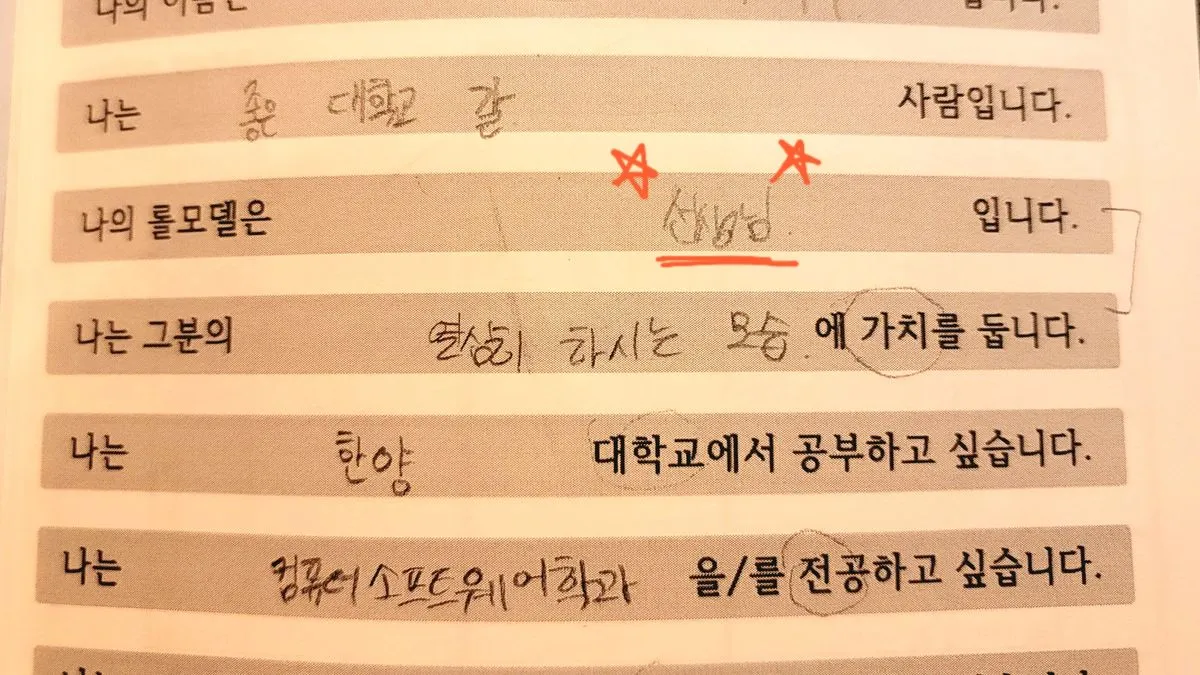 나의 이름은 입니다.
나는 좋은 대학교 갈 사람입니다.
나의 롤모델은 선생님 입니다.
나는 그분의 열심히 하시는 모습 에 가치를 둡니다.
나는 한양 대학교에서 공부하고 싶습니다.
나는 컴퓨터소프트웨어학과 을/를 전공하고 싶습니다.
나는